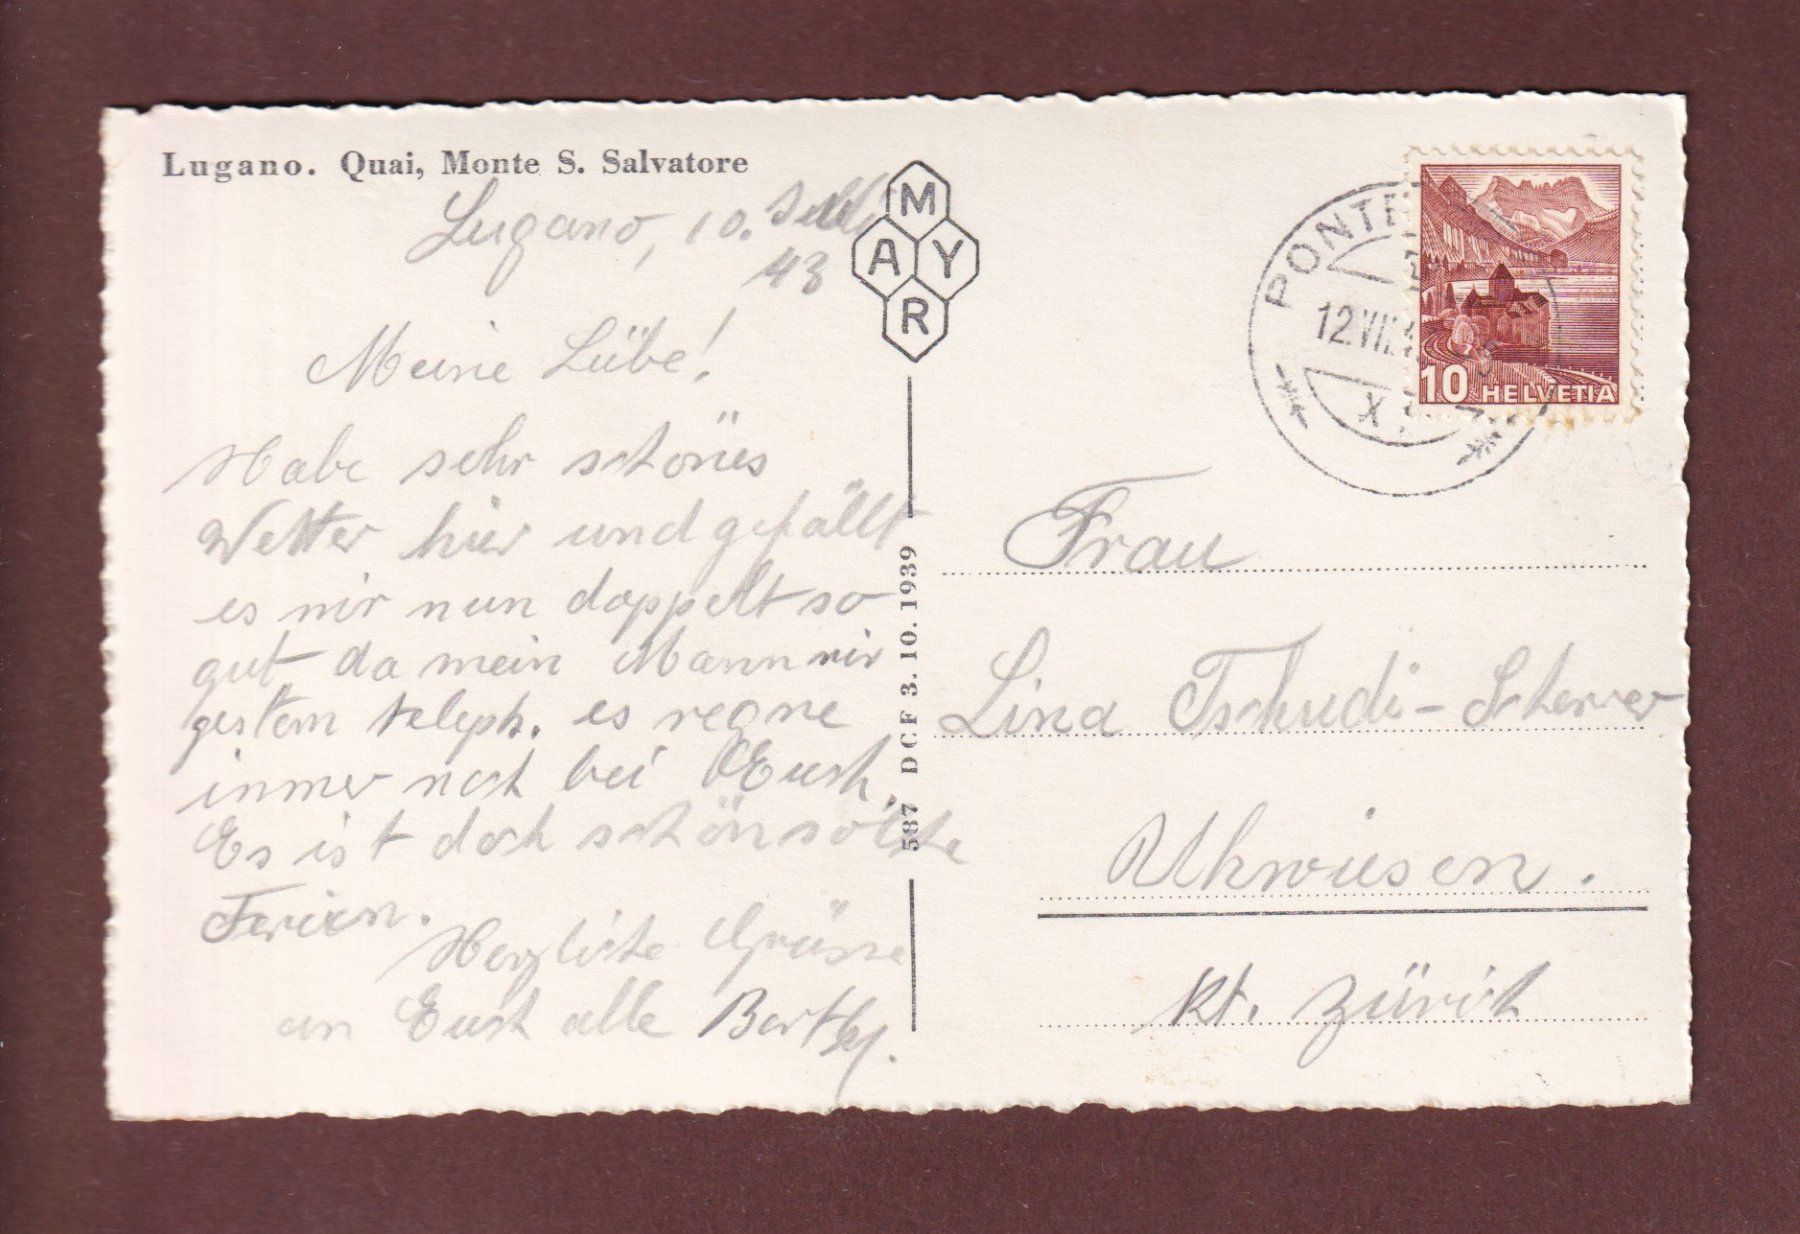 Lugano. Quai, Monte S. Salvatore
Lugano, 10.
43
Meine Lübe!
Habe sehr schönes
Wetter hier und gefällt
es mir nun doppelt so
gut da mein Mann mir
gestern teleph. es regne
immer noch bei Euch.
Es ist doch schön solche
Ferien.
Herzliche Grüsse
an Euch alle
MAYR
587 DCF 3. 10. 1939
PONTE
12.VII
X
10 HELVETIA
Frau
Lina Tschudi-Scherrer
Uhwiesen.
Kt. Zürich